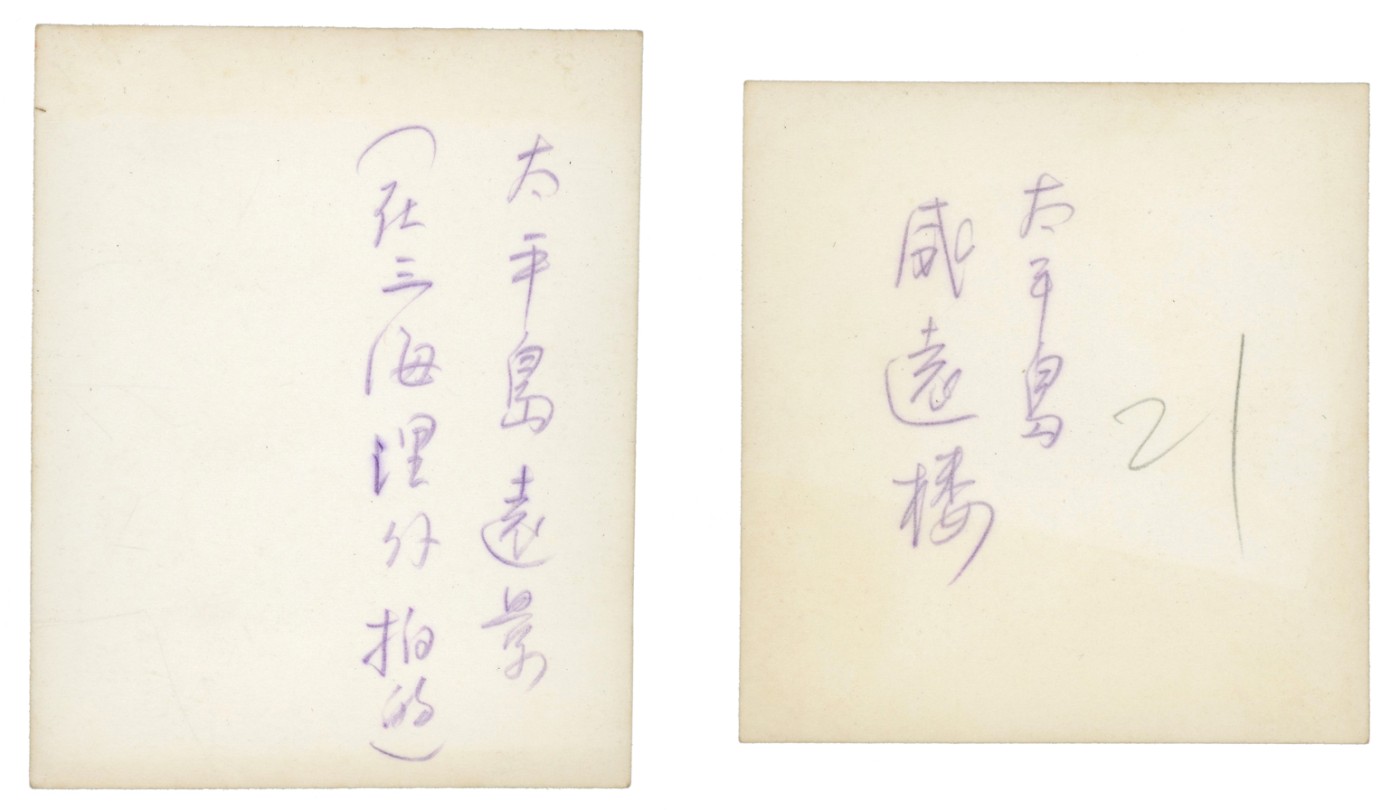 太平島遠景
(在三海浬外拍的)
21
太平島
威遠楼